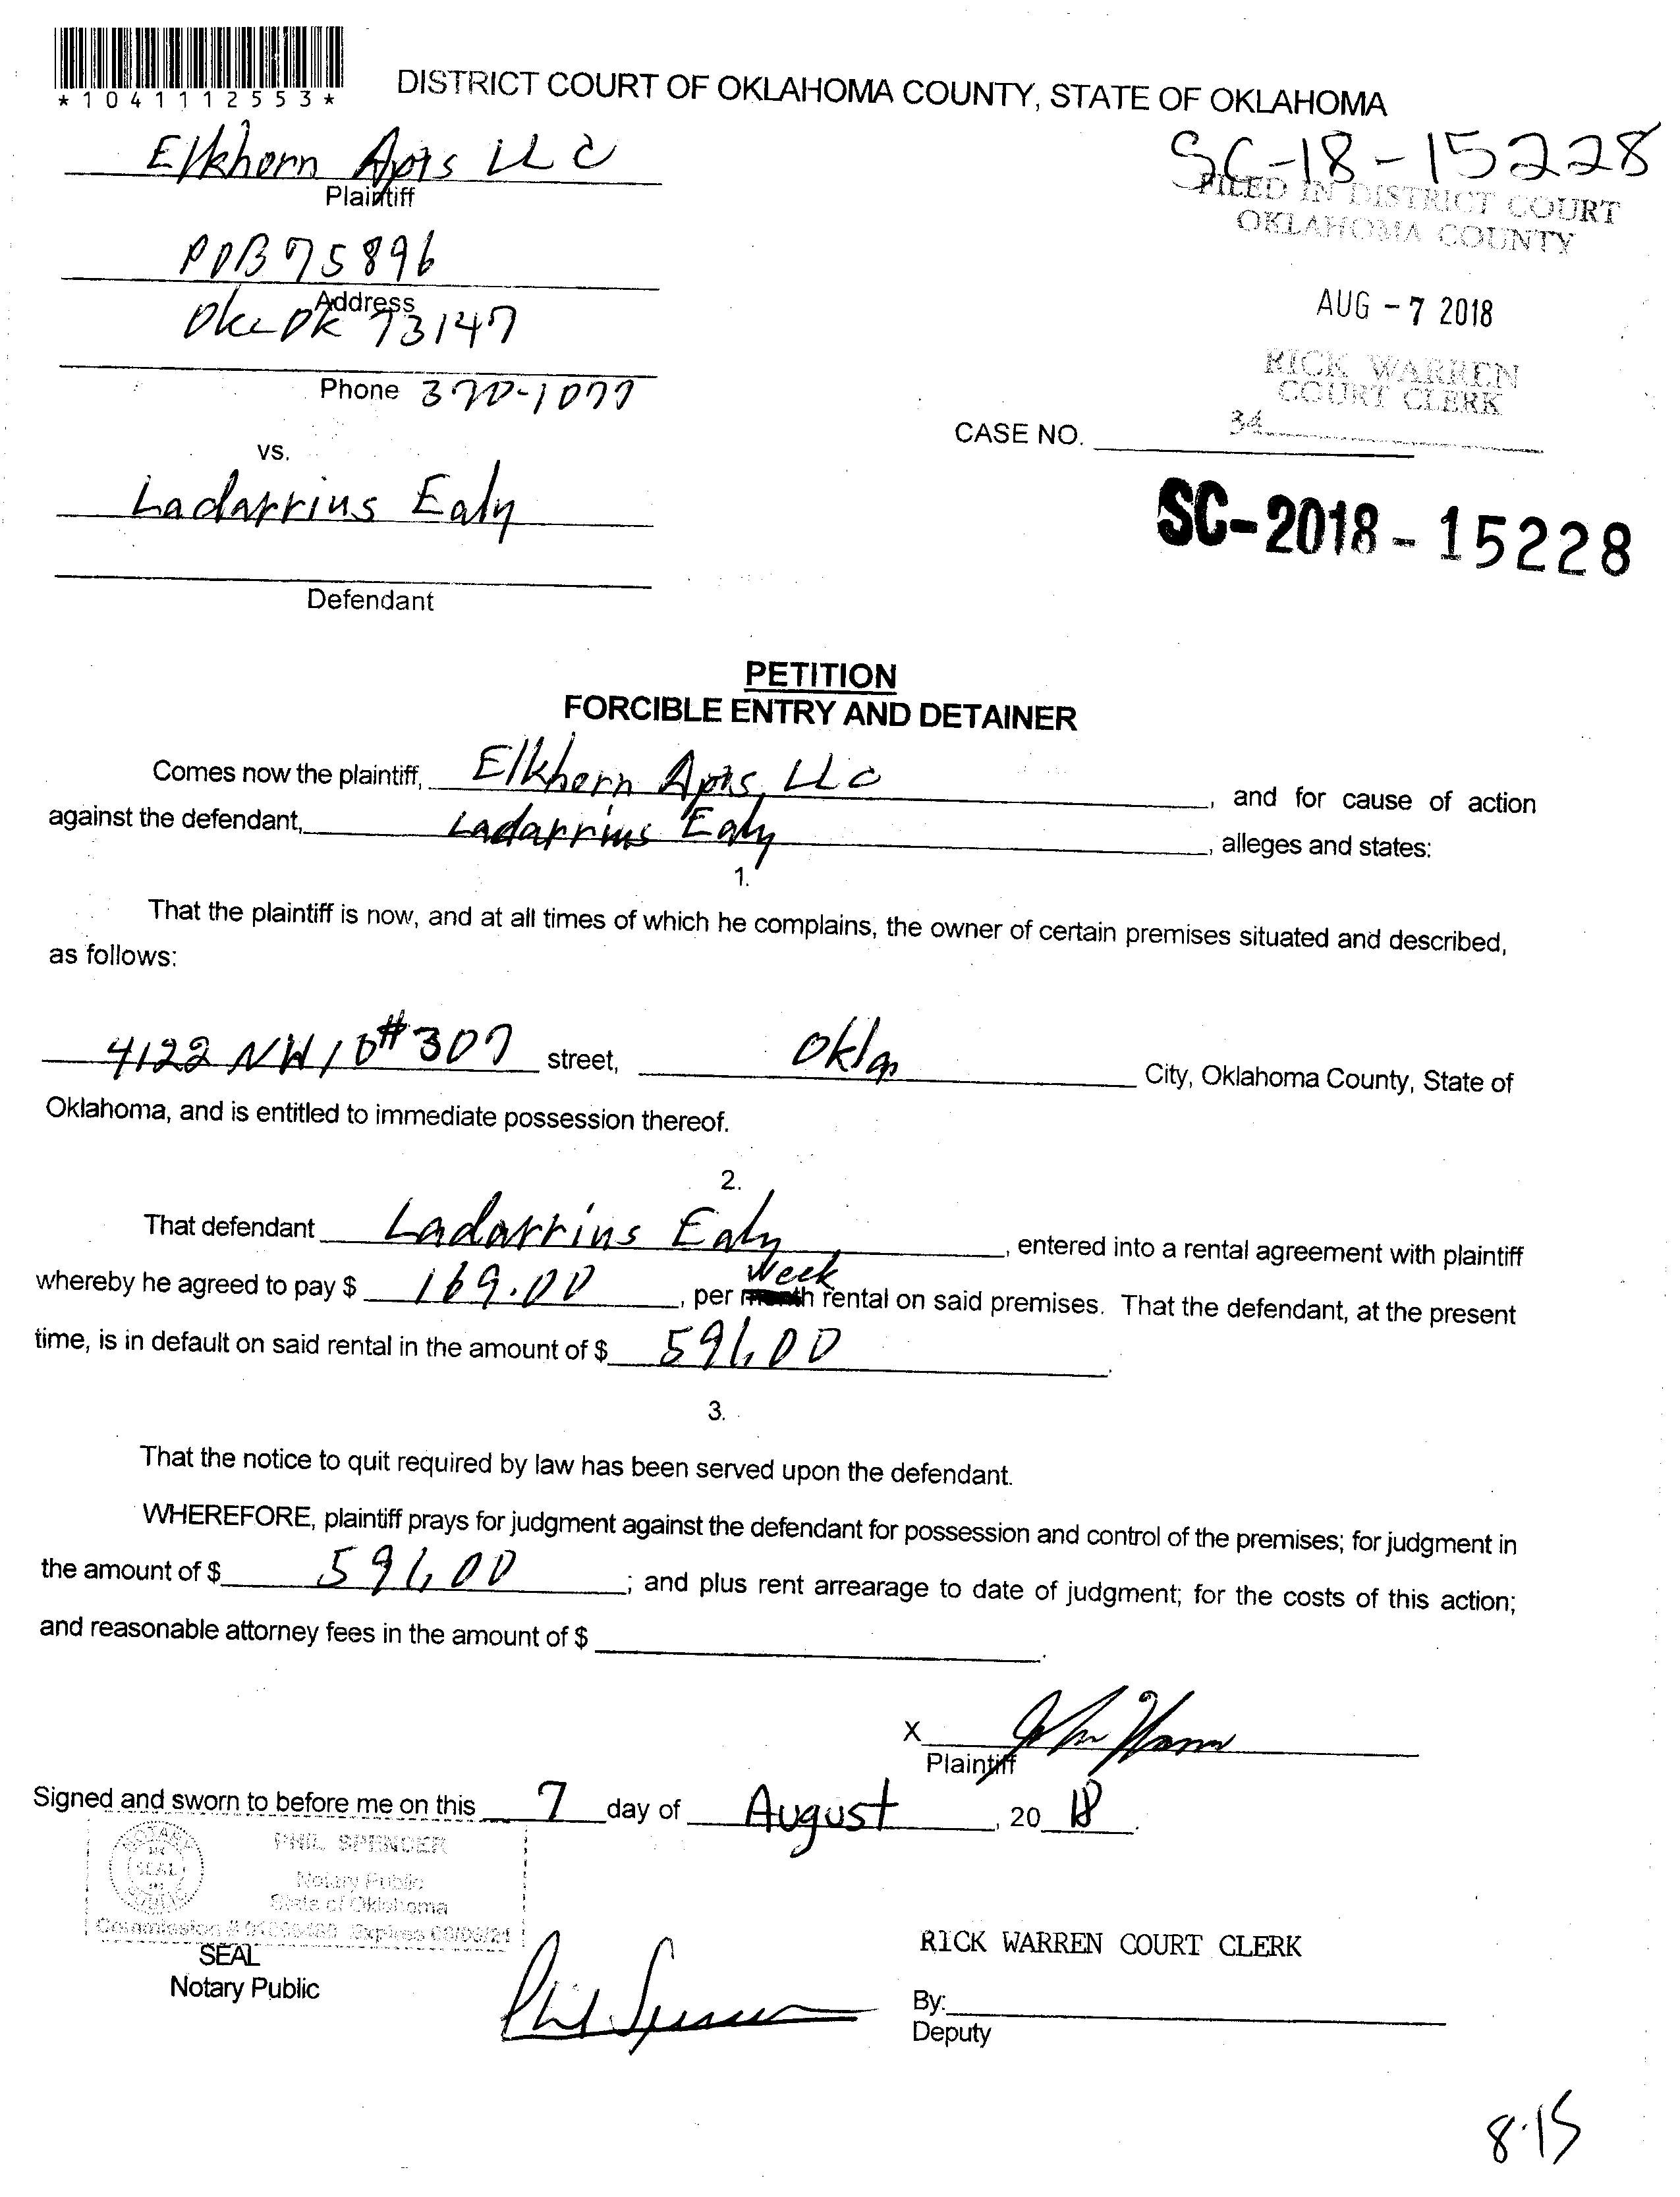 *1041112553*
DISTRICT COURT OF OKLAHOMA COUNTY, STATE OF OKLAHOMA
Elkhorn Apts LLC
Plaintiff
SC-18-15228
FILED IN DISTRICT COURT
OKLAHOMA COUNTY
POB 75896
Address
OKC OK 73147
AUG - 7 2018
RICK WARREN
COURT CLERK
Phone 370-1077
34
CASE NO.
vs.
Ladarrius Ealy
SC-2018-15228
Defendant
PETITION
FORCIBLE ENTRY AND DETAINER
Comes now the plaintiff, Elkhorn Apts, LLC, and for cause of action
against the defendant, Ladarrius Ealy, alleges and states:
1.
That the plaintiff is now, and at all times of which he complains, the owner of certain premises situated and described,
as follows:
4122 NW 10 #307 street, Okla City, Oklahoma County, State of
Oklahoma, and is entitled to immediate possession thereof.
2.
That defendant Ladarrius Ealy, entered into a rental agreement with plaintiff
whereby he agreed to pay $ 169.00, per month week rental on said premises. That the defendant, at the present
time, is in default on said rental in the amount of $ 591.00.
3.
That the notice to quit required by law has been served upon the defendant.
WHEREFORE, plaintiff prays for judgment against the defendant for possession and control of the premises; for judgment in
the amount of $ 591.00; and plus rent arrearage to date of judgment; for the costs of this action;
and reasonable attorney fees in the amount of $.
X
Plaintiff
Signed and sworn to before me on this 7 day of August, 20 18.
PHIL SPENCER
Notary Public
State of Oklahoma
Commission # Expires
SEAL
Notary Public
Phil Spencer
RICK WARREN COURT CLERK
By:
Deputy
8-15